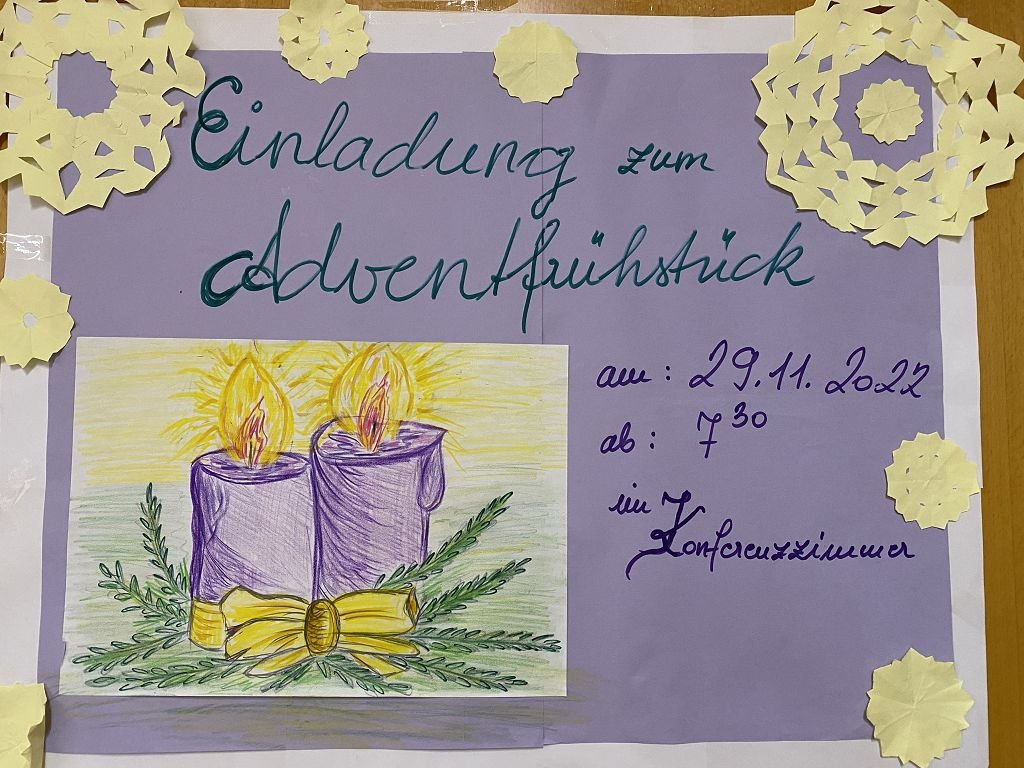 Einladung zum
Adventfrühstück
am: 29.11.2022
ab: 7³⁰
im
Konferenzzimmer